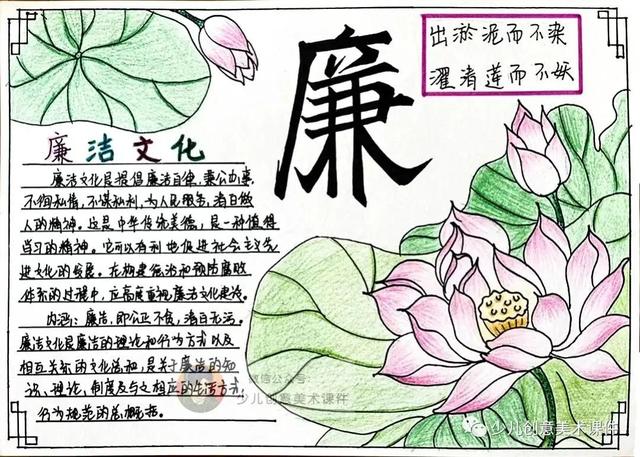 出淤泥而不染
濯清莲而不妖
廉
廉洁文化
廉洁文化是提倡廉洁自律,秉公办事,
不徇私情,不谋私利,为人民服务,清白做
人的精神。这是中华传统美德,是一种值得
学习的精神。它可以有利地促进社会主义先
进文化的发展。在构建惩治和预防腐败
体系的过程中,应高度重视廉洁文化建设。
内涵:廉洁,即公正不贪,清白无污。
廉洁文化是廉洁的理论和行为方式以及
相互关系的文化总和,是关于廉洁的知
识、理论、制度及与之相应的生活方式,
行为规范的总概括。
微信公众号:
少儿创意美术课件
少儿创意美术课件